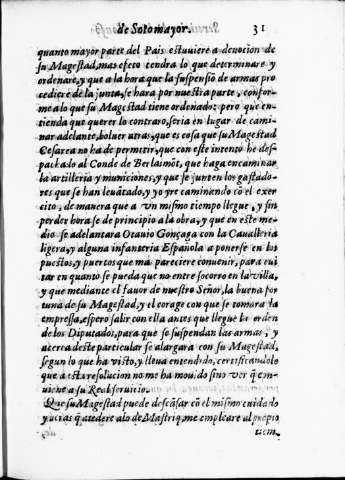 de Sotomayor. 31
quanto mayor parte del Pais estuuiere a deuocion de
su Magestad, mas efeto tendra lo que determinare y
ordenare, y que a la hora que la suspensiõ de armas pro
cediere de la junta, se hara por nuestra parte, confor-
me a lo que su Magestad tiene ordenado: pero que en-
tienda que querer lo contrario, seria en lugar de cami-
nar adelante, boluer atras, que es cosa que su Magestad
Cesarea no ha de permitir, que con este intento he des-
pachado al Conde de Berlaimõt, que haga encaminar
la artilleria y municiones, y que se junten los gastado-
res que se han leuãtado, y yo yre caminando cõ el exer
cito, de manera que a vn mismo tiempo llegue, y sin
perder hora se de principio a la obra, y que en este me-
dio se adelantara Otauio Gonçaga con la Caualleria
ligera, y alguna infanteria Española a ponerse en los
puestos, y puertos que mas pareciere conuenir, para eui
tar en quanto se pueda que no entre socorro en la villa,
y que mediante el fauor de nuestro Señor, la buena for
tuna de su Magestad, y el corage con que se tomara la
empressa, espero salir con ella antes que llegue la orden
de los Diputados, para que se suspendan las armas, y
acerca deste particular se alargara con su Magestad,
segun lo que ha visto, y lleua entendido, certificandole
que a esta resolucion no me ha mouido sino ver q̃ con-
uiene a su Real seruicio.
Que su Magestad puede descãsar cõ el mismo cuidado
y veras q̃ atedere a lo de Mastriq, me empleare al propio
tiem-